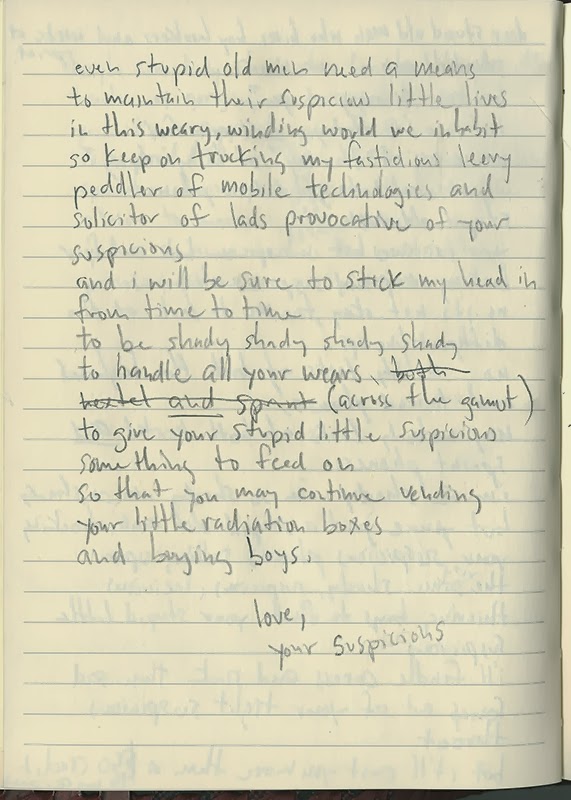 even stupid old men need a means
to maintain their suspicious little lives
in this weary, winding world we inhabit
so keep on trucking my fastidious leery
peddler of mobile technologies and
solicitor of lads provocative of your
suspicions
and i will be sure to stick my head in
from time to time
to be shady shady shady shady
to handle all your wears, both
nextel and sprint (across the gamut)
to give your stupid little suspicions
something to feed on
so that you may continue vending
your little radiation boxes
and buying boys.
love,
your suspicions